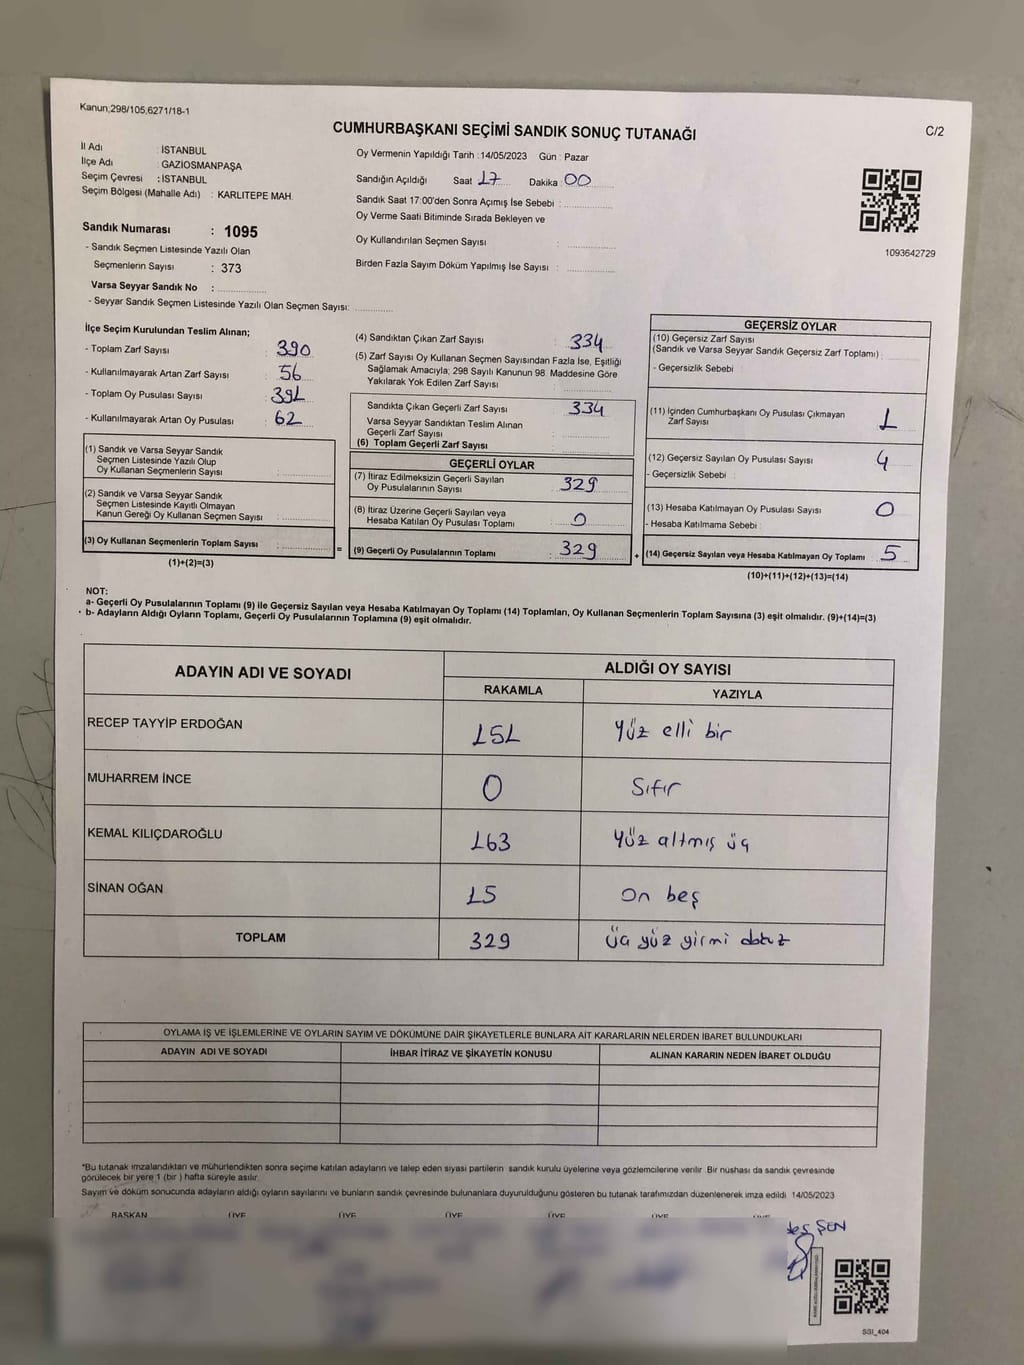 Kanun:298/105,6271/18-1
CUMHURBAŞKANI SEÇİMİ SANDIK SONUÇ TUTANAĞI
C/2
İl Adı : İSTANBUL
İlçe Adı : GAZİOSMANPAŞA
Seçim Çevresi : İSTANBUL
Seçim Bölgesi (Mahalle Adı) : KARLITEPE MAH.
Sandık Numarası : 1095
- Sandık Seçmen Listesinde Yazılı Olan
Seçmenlerin Sayısı : 373
Varsa Seyyar Sandık No :
- Seyyar Sandık Seçmen Listesinde Yazılı Olan Seçmen Sayısı:
Oy Vermenin Yapıldığı Tarih : 14/05/2023 Gün : Pazar
Sandığın Açıldığı Saat 17 Dakika 00
Sandık Saat 17:00'den Sonra Açımış İse Sebebi :
Oy Verme Saati Bitiminde Sırada Bekleyen ve
Oy Kullandırılan Seçmen Sayısı :
Birden Fazla Sayım Döküm Yapılmış İse Sayısı :
1093642729
İlçe Seçim Kurulundan Teslim Alınan;
- Toplam Zarf Sayısı : 390
- Kullanılmayarak Artan Zarf Sayısı : 56
- Toplam Oy Pusulası Sayısı : 391
- Kullanılmayarak Artan Oy Pusulası : 62
(1) Sandık ve Varsa Seyyar Sandık
Seçmen Listesinde Yazılı Olup
Oy Kullanan Seçmenlerin Sayısı :
(2) Sandık ve Varsa Seyyar Sandık
Seçmen Listesinde Kayıtlı Olmayan
Kanun Gereği Oy Kullanan Seçmen Sayısı :
(3) Oy Kullanan Seçmenlerin Toplam Sayısı :
(1)+(2)=(3)
=
(4) Sandıktan Çıkan Zarf Sayısı : 334
(5) Zarf Sayısı Oy Kullanan Seçmen Sayısından Fazla İse, Eşitliği
Sağlamak Amacıyla; 298 Sayılı Kanunun 98. Maddesine Göre
Yakılarak Yok Edilen Zarf Sayısı :
Sandıkta Çıkan Geçerli Zarf Sayısı : 334
Varsa Seyyar Sandıktan Teslim Alınan
Geçerli Zarf Sayısı :
(6) Toplam Geçerli Zarf Sayısı
GEÇERLİ OYLAR
(7) İtiraz Edilmeksizin Geçerli Sayılan
Oy Pusulalarının Sayısı : 329
(8) İtiraz Üzerine Geçerli Sayılan veya
Hesaba Katılan Oy Pusulası Toplamı : 0
(9) Geçerli Oy Pusulalarının Toplamı : 329
+
GEÇERSİZ OYLAR
(10) Geçersiz Zarf Sayısı
(Sandık ve Varsa Seyyar Sandık Geçersiz Zarf Toplamı) :
- Geçersizlik Sebebi :
(11) İçinden Cumhurbaşkanı Oy Pusulası Çıkmayan
Zarf Sayısı : 1
(12) Geçersiz Sayılan Oy Pusulası Sayısı : 4
- Geçersizlik Sebebi :
(13) Hesaba Katılmayan Oy Pusulası Sayısı : 0
- Hesaba Katılmama Sebebi :
(14) Geçersiz Sayılan veya Hesaba Katılmayan Oy Toplamı : 5
(10)+(11)+(12)+(13)=(14)
NOT:
a- Geçerli Oy Pusulalarının Toplamı (9) ile Geçersiz Sayılan veya Hesaba Katılmayan Oy Toplamı (14) Toplamları, Oy Kullanan Seçmenlerin Toplam Sayısına (3) eşit olmalıdır. (9)+(14)=(3)
b- Adayların Aldığı Oyların Toplamı, Geçerli Oy Pusulalarının Toplamına (9) eşit olmalıdır.
ADAYIN ADI VE SOYADI
ALDIĞI OY SAYISI
RAKAMLA YAZIYLA
RECEP TAYYİP ERDOĞAN 151 Yüz elli bir
MUHARREM İNCE 0 Sıfır
KEMAL KILIÇDAROĞLU 163 Yüz altmış üç
SİNAN OĞAN 15 On beş
TOPLAM 329 Üç yüz yirmi dokuz
OYLAMA İŞ VE İŞLEMLERİNE VE OYLARIN SAYIM VE DÖKÜMÜNE DAİR ŞİKAYETLERLE BUNLARA AİT KARARLARIN NELERDEN İBARET BULUNDUKLARI
ADAYIN ADI VE SOYADI İHBAR İTİRAZ VE ŞİKAYETİN KONUSU ALINAN KARARIN NEDEN İBARET OLDUĞU
*Bu tutanak imzalandıktan ve mühürlendikten sonra seçime katılan adayların ve talep eden siyasi partilerin sandık kurulu üyelerine veya gözlemcilerine verilir. Bir nüshası da sandık çevresinde
görülecek bir yere 1 (bir ) hafta süreyle asılır.
Sayım ve döküm sonucunda adayların aldığı oyların sayılarını ve bunların sandık çevresinde bulunanlara duyurulduğunu gösteren bu tutanak tarafımızdan düzenlenerek imza edildi. 14/05/2023
BAŞKAN ÜYE ÜYE ÜYE ÜYE ÜYE ÜYE
ŞEN
SGI_404